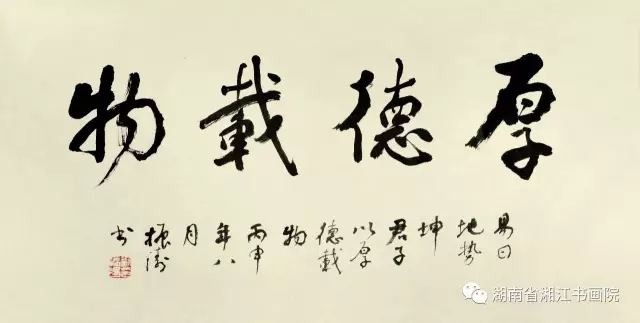 厚德載物
易曰
地势
坤
君子
以厚
德載
物
丙申
年八
月
振涛
书
湖南省湘江书画院